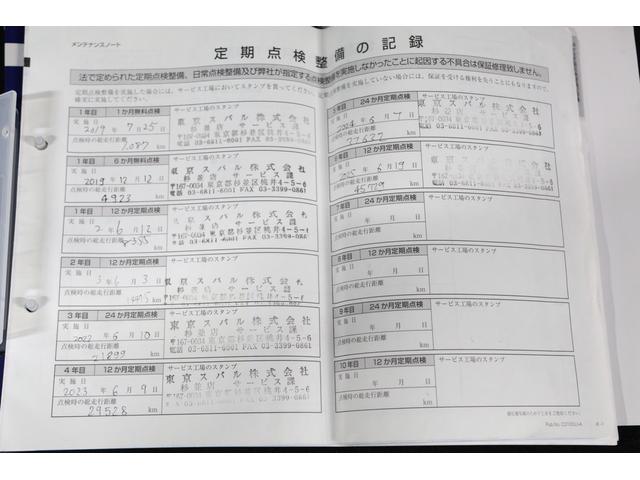 メンテナンスノート
定期点検整備の記録
法で定められた定期点検整備、日常点検整備及び弊社が指定する点検整備を実施しなかったことに起因する不具合は保証修理致しません。
定期点検整備を実施した場合には、サービス工場においてスタンプを貰ってください。
確実に実施してください。
を実施していない場合には、保証を受ける権利を失うことにもなりますので、
1年目 1か月無料点検 サービス工場のスタンプ
実施日
2019年 7月 25日
東京スバル株式会社
杉並店 サービス課
〒167-0034 東京都杉並区桃井4-5-6
03-6811-6001 FAX 03-3399-0861
点検時の総走行距離
1,087 km
1年目 6か月無料点検 サービス工場のスタンプ
実施日
2019年 12月 12日
東京スバル株式会社
杉並店 サービス課
〒167-0034 東京都杉並区桃井4-5-6
電話 03-6811-6001 FAX 03-3399-0861
点検時の総走行距離
4923 km
1年目 12か月定期点検 サービス工場のスタンプ
実施日
2年 6月 12日
東京スバル株式会社
杉並店 サービス課
〒167-0034 東京都杉並区桃井4-5-6
03-6811-6001 FAX 03-3399-0861
点検時の総走行距離
km
2年目 12か月定期点検 サービス工場のスタンプ
実施日
3年 6月 3日
東京スバル株式会社
点検時の総走行距離
km
3年目 24か月定期点検 サービス工場のスタンプ
実施日
2022年 6月 10日
東京スバル株式会社
杉並店 サービス課
〒167-0034 東京都杉並区桃井4-5-6
電話 03-6811-6001 FAX 03-3399-0861
点検時の総走行距離
21899 km
4年目 12か月定期点検 サービス工場のスタンプ
実施日
2023年 6月 9日
東京スバル株式会社
杉並店 サービス課
〒167-0034 東京都杉並区桃井4-5-6
電話 03-6811-6001 FAX 03-3399-0861
点検時の総走行距離
29528 km
24か月定期点検 サービス工場のスタンプ
2024年 6月 7日
東京スバル株式会社
杉並店 サービス課
点検時の総走行距離
37637 km
12か月定期点検 サービス工場のスタンプ
6月 19日
東京スバル株式会社
杉並店 サービス課
点検時の総走行距離
45729 km
7年目 24か月定期点検 サービス工場のスタンプ
実施日
年 月 日
点検時の総走行距離
km
8年目 12か月定期点検 サービス工場のスタンプ
実施日
年 月 日
点検時の総走行距離
km
9年目 24か月定期点検 サービス工場のスタンプ
実施日
年 月 日
点検時の総走行距離
km
10年目 12か月定期点検 サービス工場のスタンプ
実施日
年 月 日
点検時の総走行距離
km